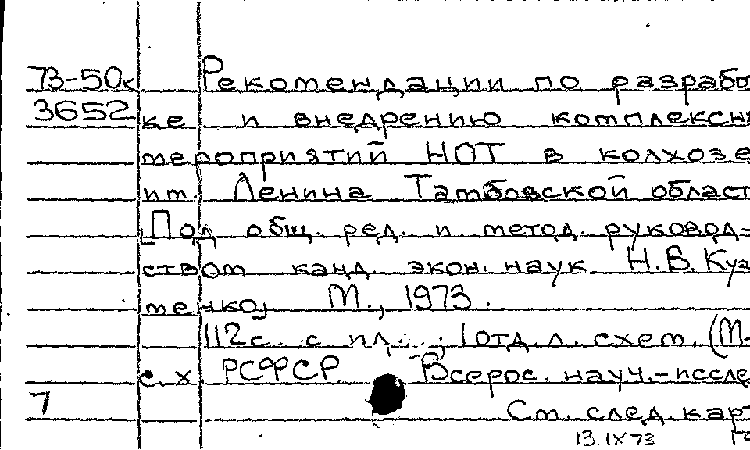 73-50к Рекомендации по разрабо
3652 ке и внедрению комплексн
мероприятий НОТ в колхозе
им. Ленина Тамбовской област
[Под общ. ред. и метод. руковод-
ством канд. экон. наук Н.В. Куз
менко]. М., 1973.
112 с. с ил.; 1 отд. л. схем. (М-
с.х. РСФСР. Всерос. науч.-иссле
7 См. след. карт
13 IX 73